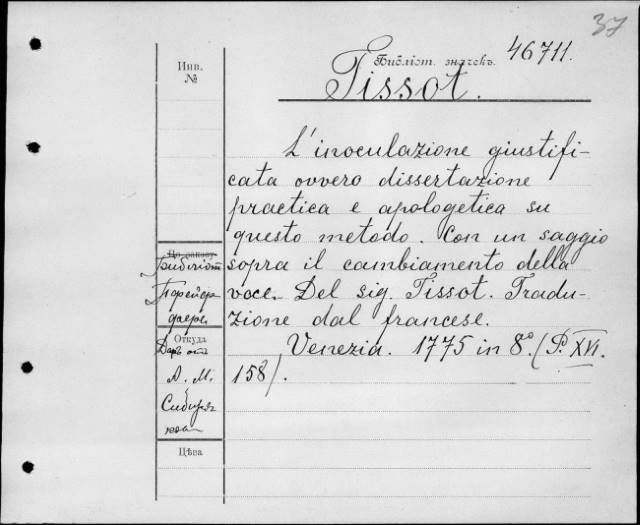 37
Библіот. значекъ 46711.
Инв.
№
Tissot.
L'inoculazione giustifi-
cata ovvero dissertazione
practica e apologetica su
questo metodo. Con un saggio
sopra il cambiamento della
voce. Del sig. Tissot. Tradu-
zione dal francese.
Venezia. 1775 in 8º. (P. XVI.
158).
По заказу
Откуда
Даръ отъ
А. М.
Сибиря-
кова
Цѣна